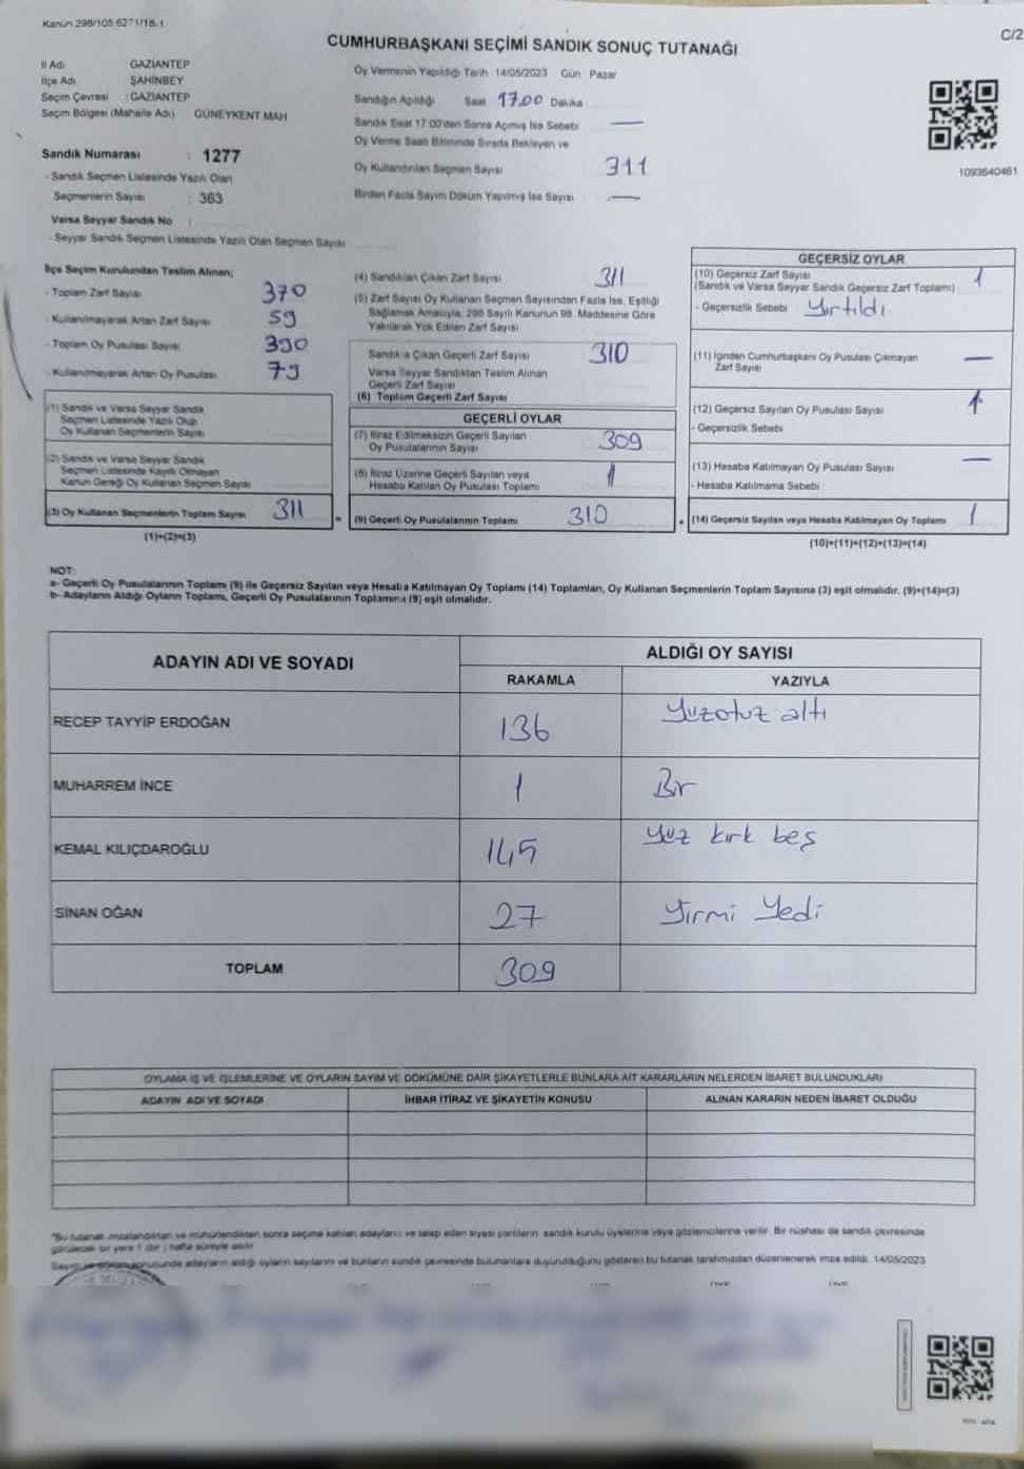 Kanun 298/105 6271/18-1
C/2
CUMHURBAŞKANI SEÇİMİ SANDIK SONUÇ TUTANAĞI
İl Adı GAZİANTEP
İlçe Adı ŞAHİNBEY
Seçim Çevresi : GAZİANTEP
Seçim Bölgesi (Mahalle Adı) GÜNEYKENT MAH
Sandık Numarası : 1277
- Sandık Seçmen Listesinde Yazılı Olan
Seçmenlerin Sayısı : 363
Varsa Seyyar Sandık No :
- Seyyar Sandık Seçmen Listesinde Yazılı Olan Seçmen Sayısı
Oy Vermenin Yapıldığı Tarih 14/05/2023 Gün Pazar
Sandığın Açıldığı Saat 17.00 Dakika
Sandık Saat 17:00'den Sonra Açılmış İse Sebebi —
Oy Verme Saati Bitiminde Sırada Bekleyen ve
Oy Kullandırılan Seçmen Sayısı 311
Birden Fazla Sayım Döküm Yapılmış İse Sayısı —
1093640461
İlçe Seçim Kurulundan Teslim Alınan;
- Toplam Zarf Sayısı 370
- Kullanılmayarak Artan Zarf Sayısı 59
- Toplam Oy Pusulası Sayısı 390
- Kullanılmayarak Artan Oy Pusulası 79
(1) Sandık ve Varsa Seyyar Sandık
Seçmen Listesinde Yazılı Olup
Oy Kullanan Seçmenlerin Sayısı
(2) Sandık ve Varsa Seyyar Sandık
Seçmen Listesinde Kayıtlı Olmayan
Kanun Gereği Oy Kullanan Seçmen Sayısı
(3) Oy Kullanan Seçmenlerin Toplam Sayısı 311
(1)+(2)=(3)
(4) Sandıktan Çıkan Zarf Sayısı 311
(5) Zarf Sayısı Oy Kullanan Seçmen Sayısından Fazla İse, Eşitliği
Sağlamak Amacıyla, 298 Sayılı Kanunun 98. Maddesine Göre
Yakılarak Yok Edilen Zarf Sayısı
Sandıkta Çıkan Geçerli Zarf Sayısı 310
Varsa Seyyar Sandıktan Teslim Alınan
Geçerli Zarf Sayısı
(6) Toplam Geçerli Zarf Sayısı
GEÇERLİ OYLAR
(7) İtiraz Edilmeksizin Geçerli Sayılan
Oy Pusulalarının Sayısı 309
(8) İtiraz Üzerine Geçerli Sayılan veya
Hesaba Katılan Oy Pusulası Toplamı 1
= (9) Geçerli Oy Pusulalarının Toplamı 310
GEÇERSİZ OYLAR
(10) Geçersiz Zarf Sayısı 1
(Sandık ve Varsa Seyyar Sandık Geçersiz Zarf Toplamı)
- Geçersizlik Sebebi : Yırtıldı
(11) İçinden Cumhurbaşkanı Oy Pusulası Çıkmayan
Zarf Sayısı —
(12) Geçersiz Sayılan Oy Pusulası Sayısı 1
- Geçersizlik Sebebi
(13) Hesaba Katılmayan Oy Pusulası Sayısı —
- Hesaba Katılmama Sebebi :
+ (14) Geçersiz Sayılan veya Hesaba Katılmayan Oy Toplamı 1
(10)+(11)+(12)+(13)=(14)
NOT:
a- Geçerli Oy Pusulalarının Toplamı (9) ile Geçersiz Sayılan veya Hesaba Katılmayan Oy Toplamı (14) Toplamları, Oy Kullanan Seçmenlerin Toplam Sayısına (3) eşit olmalıdır. (9)+(14)=(3)
b- Adayların Aldığı Oyların Toplamı, Geçerli Oy Pusulalarının Toplamına (9) eşit olmalıdır.
ADAYIN ADI VE SOYADI
ALDIĞI OY SAYISI
RAKAMLA YAZIYLA
RECEP TAYYİP ERDOĞAN 136 Yüzotuz altı
MUHARREM İNCE 1 Bir
KEMAL KILIÇDAROĞLU 145 Yüz kırk beş
SİNAN OĞAN 27 Yirmi Yedi
TOPLAM 309
OYLAMA İŞ VE İŞLEMLERİNE VE OYLARIN SAYIM VE DÖKÜMÜNE DAİR ŞİKAYETLERLE BUNLARA AİT KARARLARIN NELERDEN İBARET BULUNDUKLARI
ADAYIN ADI VE SOYADI İHBAR İTİRAZ VE ŞİKAYETİN KONUSU ALINAN KARARIN NEDEN İBARET OLDUĞU
*Bu tutanak imzalandıktan ve mühürlendikten sonra seçime katılan adayların ve talep eden siyasi partilerin sandık kurulu üyelerine veya gözlemcilerine verilir. Bir nüshası da sandık çevresinde
görülecek bir yere 1 (bir) hafta süreyle asılır
adayların aldığı oyların sayılarını ve bunların sandık çevresinde bulunanlara duyurulduğunu gösteren bu tutanak tarafımızdan düzenlenerek imza edildi. 14/05/2023